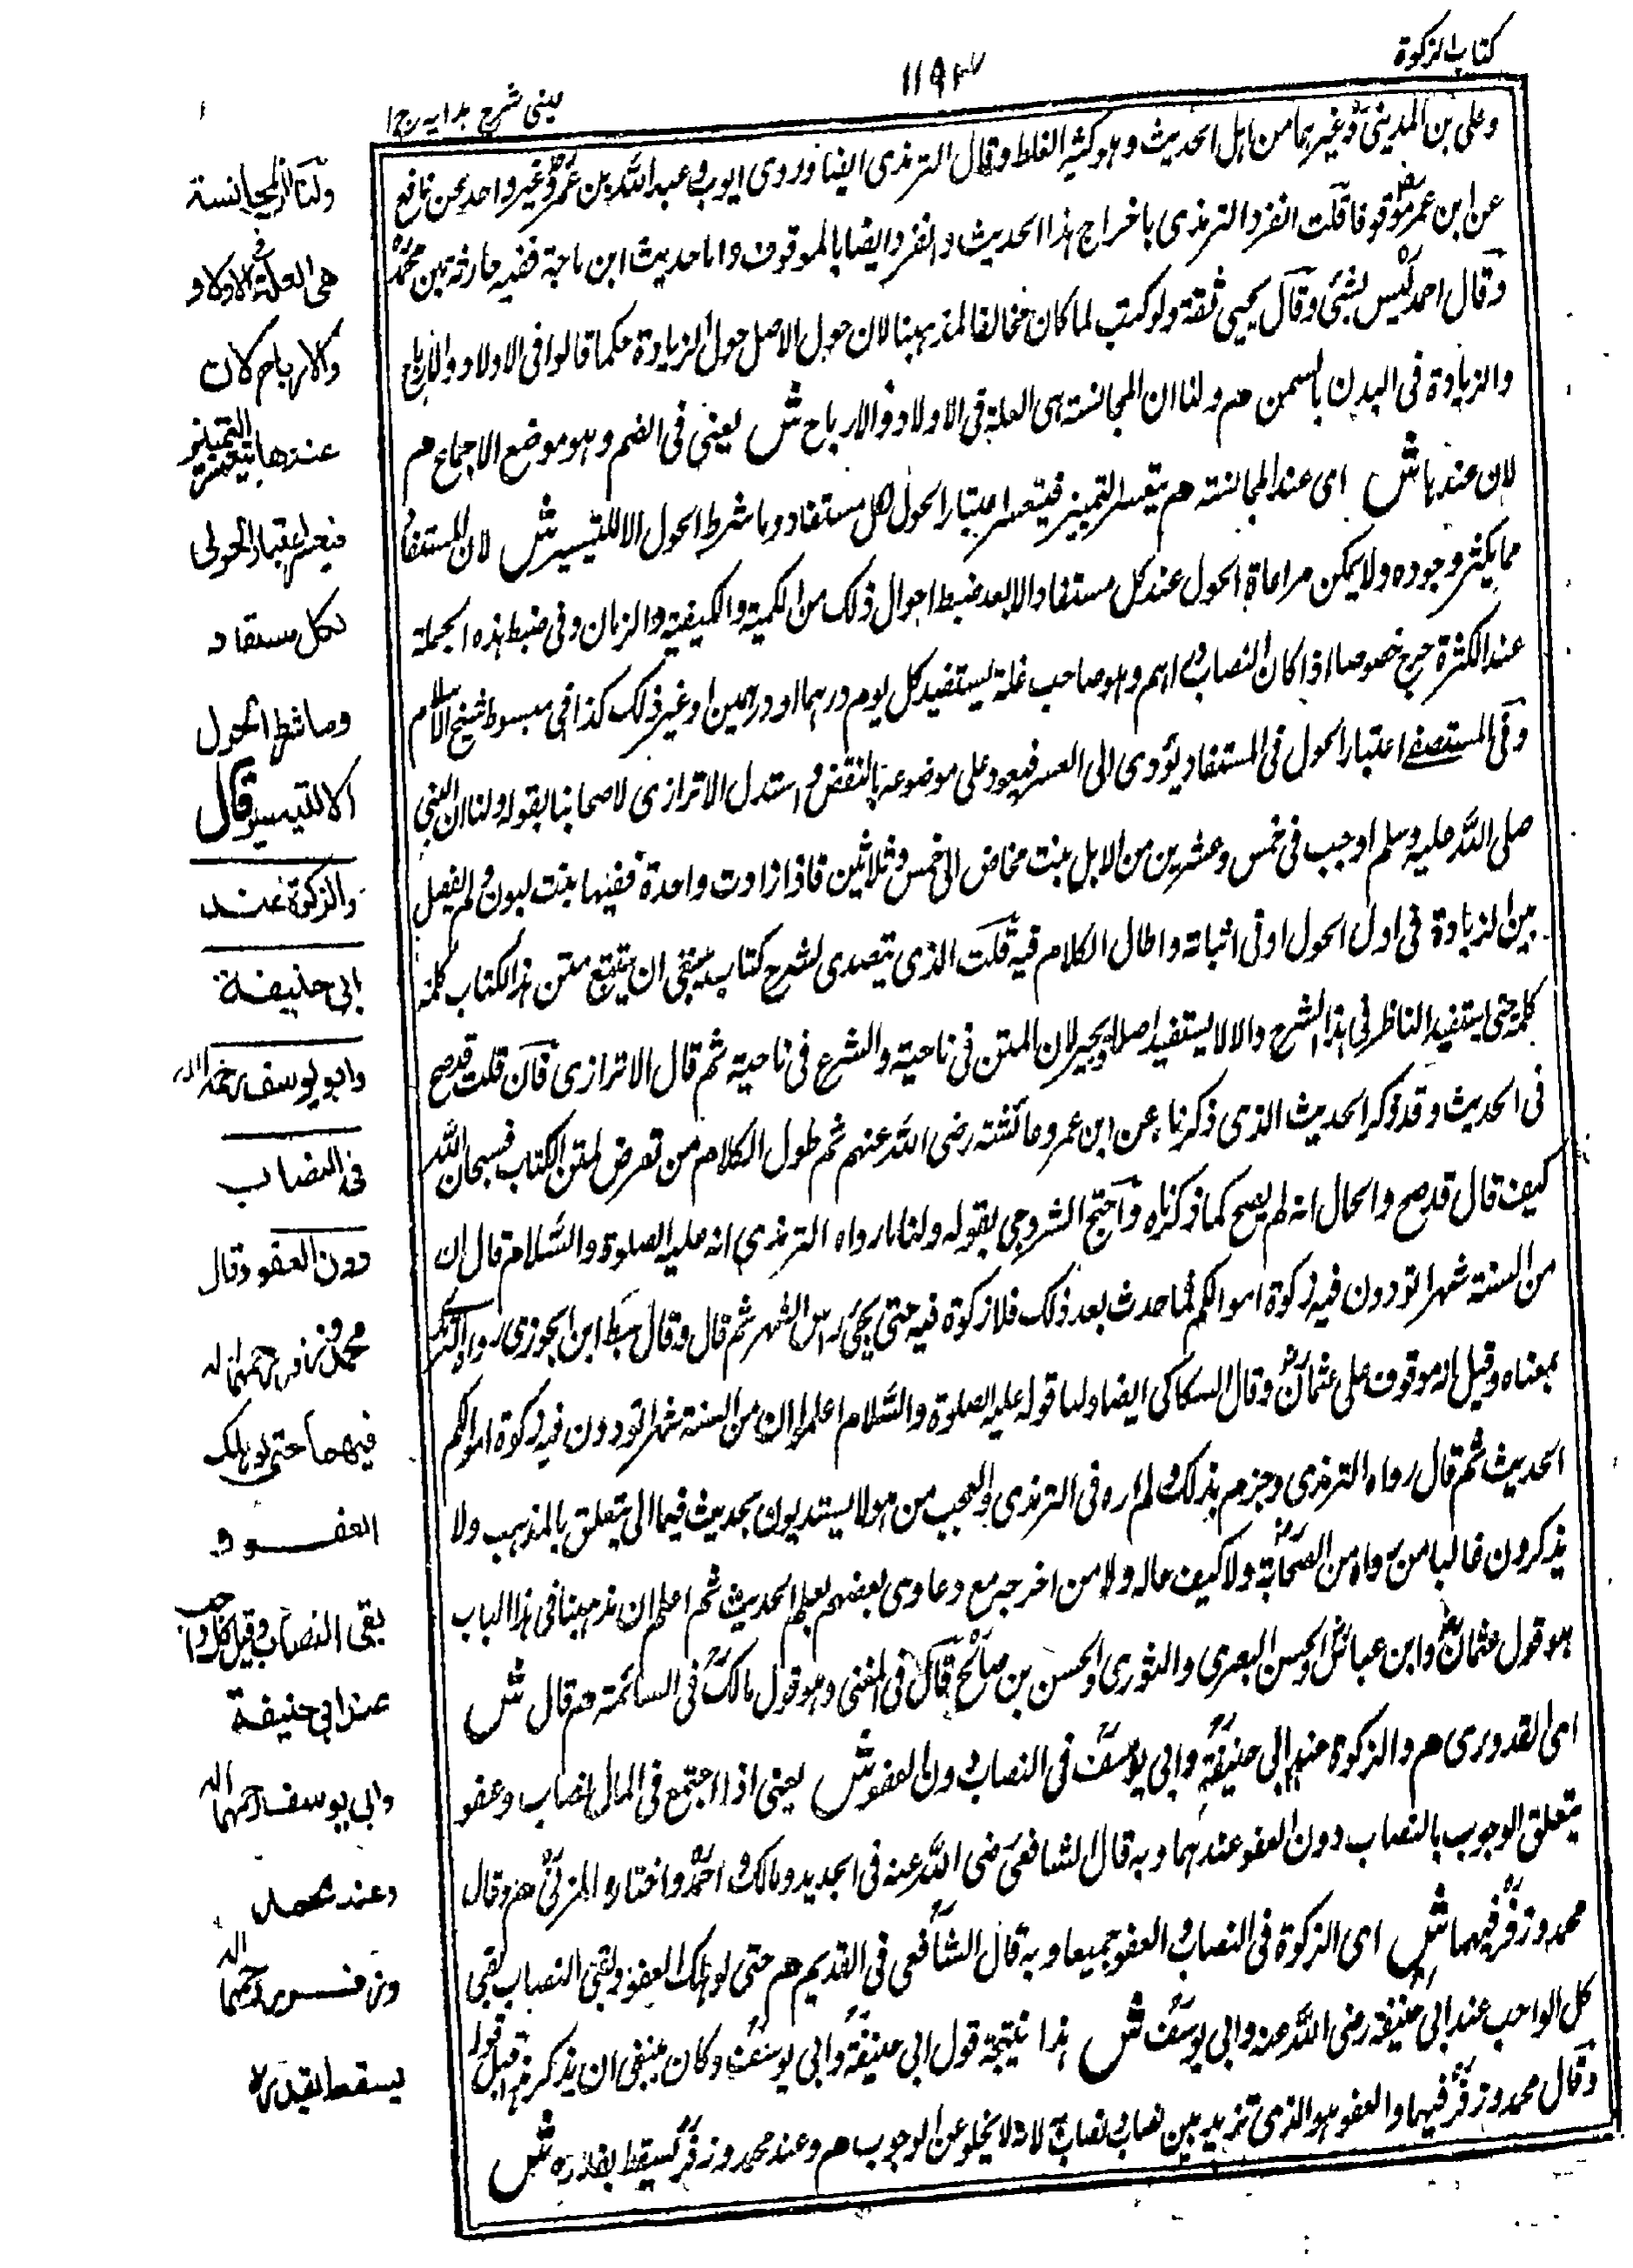 كتاب الزكوة
١١٩٣
عينى شرح هدايه ج ١
وعلى بن المدينى وغيرهما من اهل الحديث وهو كثير الغلط وقال الترمذى ايضا وروى ايوب وعبد الله بن عمر وغير واحد عن نافع
عن ابن عمر موقوفا قلت انفرد الترمذى باخراج هذا الحديث وانفرد ايضا بالموقوف واما حديث ابن ماجة ففيه حارثة بن محمد
وقال احمد ليس بشئ وقال يحيى ثقة ولو كتب لما كان مخالفا لمذهبنا لان حول الاصل حول الزيادة حكما قالوا فى الاولاد والارباح
والزيادة فى البدن بالسمن هم ولنا ان المجانسة هى العلة فى الاولاد والارباح ش يعنى فى الضم وهو موضع الاجماع هم
لان عندها ش اى عند المجانسة هم يتعسر التميز فيتعسر اعتبار الحول لكل مستفاد وما شرط الحول الا للتيسير ش لان المستفاد
مما يكثر وجوده ولا يمكن مراعاة الحول عند كل مستفاد الا بعد ضبط احوال ذلك من الكمية والكيفية والزمان وفى ضبط هذه الجملة
عند الكثرة حرج خصوصا اذا كان النصاب دراهم وهو صاحب غلة يستفيد كل يوم درهما او درهمين او غير ذلك كذا فى مبسوط شيخ الاسلام
وفى المستصفى اعتبار الحول فى المستفاد يؤدى الى العسر فيعود على موضوعه بالنقض واستدل الاترازى لاصحابنا بقوله ولنا ان النبى
صلى الله عليه وسلم اوجب فى خمس وعشرين من الابل بنت مخاض الى خمس وثلاثين فاذا زادت واحدة ففيها بنت لبون ولم يفصل
بين الزيادة فى اول الحول او فى اثنائه واطال الكلام فيه قلت الذى يتصدى لشرح كتاب ينبغى ان يتبع متن هذا الكتاب كلمة
كلمة حتى يستفيد الناظر فى هذا الشرح والا لا يستفيد اصلا ويحير لان المتن فى ناحية والشرع فى ناحية ثم قال الاترازى فان قلت قد صح
فى الحديث وقد ذكر الحديث الذى ذكرنا عن ابن عمر وعائشة رضى الله عنهم ثم طول الكلام من تعرض لمتن الكتاب فسبحان الله
كيف قال قد صح والحال انه لم يصح كما ذكرناه واحتج السروجى بقوله ولنا ما رواه الترمذى انه عليه الصلوة والسلام قال ان
من السنة شهرا تودون فيه زكوة اموالكم فما حدث بعد ذلك فلا زكوة فيه حتى يجئ راس الشهر ثم قال وقال سبط ابن الجوزى رواه الترمذى
بمعناه وقيل انه موقوف على عثمان وقال السكاكى ايضا ولنا قوله عليه الصلوة والسلام اعلموا ان من السنة شهرا تودون فيه زكوة اموالكم
الحديث ثم قال رواه الترمذى وجزم بذلك ولم اره فى الترمذى والعجب من هولا يستدلون بحديث فيما الى يتعلق بالمذهب ولا
يذكرون غالبا من رواه من الصحابة ولا كيف حاله ولا من اخرجه مع دعاوى بعضهم بعلم الحديث ثم اعلم ان مذهبنا فى هذا الباب
هو قول عثمان وابن عباس والحسن البصرى والثورى والحسن بن صالح قال فى المغنى وهو قول مالك فى السائمة هم قال ش
اى القدورى هم والزكوة عند ابى حنيفة وابى يوسف فى النصاب دون العفو ش يعنى اذا اجتمع فى المال نصاب وعفو
يتعلق الوجوب بالنصاب دون العفو عندهما وبه قال الشافعى رضى الله عنه فى الجديد ومالك واحمد واختاره المزنى هم وقال
محمد وزفر فيهما ش اى الزكوة فى النصاب والعفو جميعا وبه قال الشافعى فى القديم هم حتى لو هلك العفو وبقى النصاب بقى
كل الواجب عند ابى حنيفة رضى الله عنه وابى يوسف ش هذا نتيجة قول ابى حنيفة وابى يوسف وكان ينبغى ان يذكر هذا قبل قوله
وقال محمد وزفر فيهما والعفو هو الذى تزيد بين نصاب ونصاب لانه لا يخلو عن الوجوب هم وعند محمد وزفر يسقط بقدره ش
ولنا ان المجانسة
هى العلة فى الاولاد
والارباح لان
عندها يتعسر التميز
فيعسر اعتبار الحول
لكل مستفاد
وما شرط الحول
الا للتيسير قال
والزكوة عند
ابى حنيفة
وابو يوسف رحمه الله
فى النصاب
دون العفو وقال
محمد وزفر رحمهما الله
فيهما حتى لو هلك
العفو و
بقى النصاب بقى كل الواجب
عند ابى حنيفة
وابى يوسف رحمهما الله
وعند محمد
وزفر رحمهما الله
يسقط بقدره